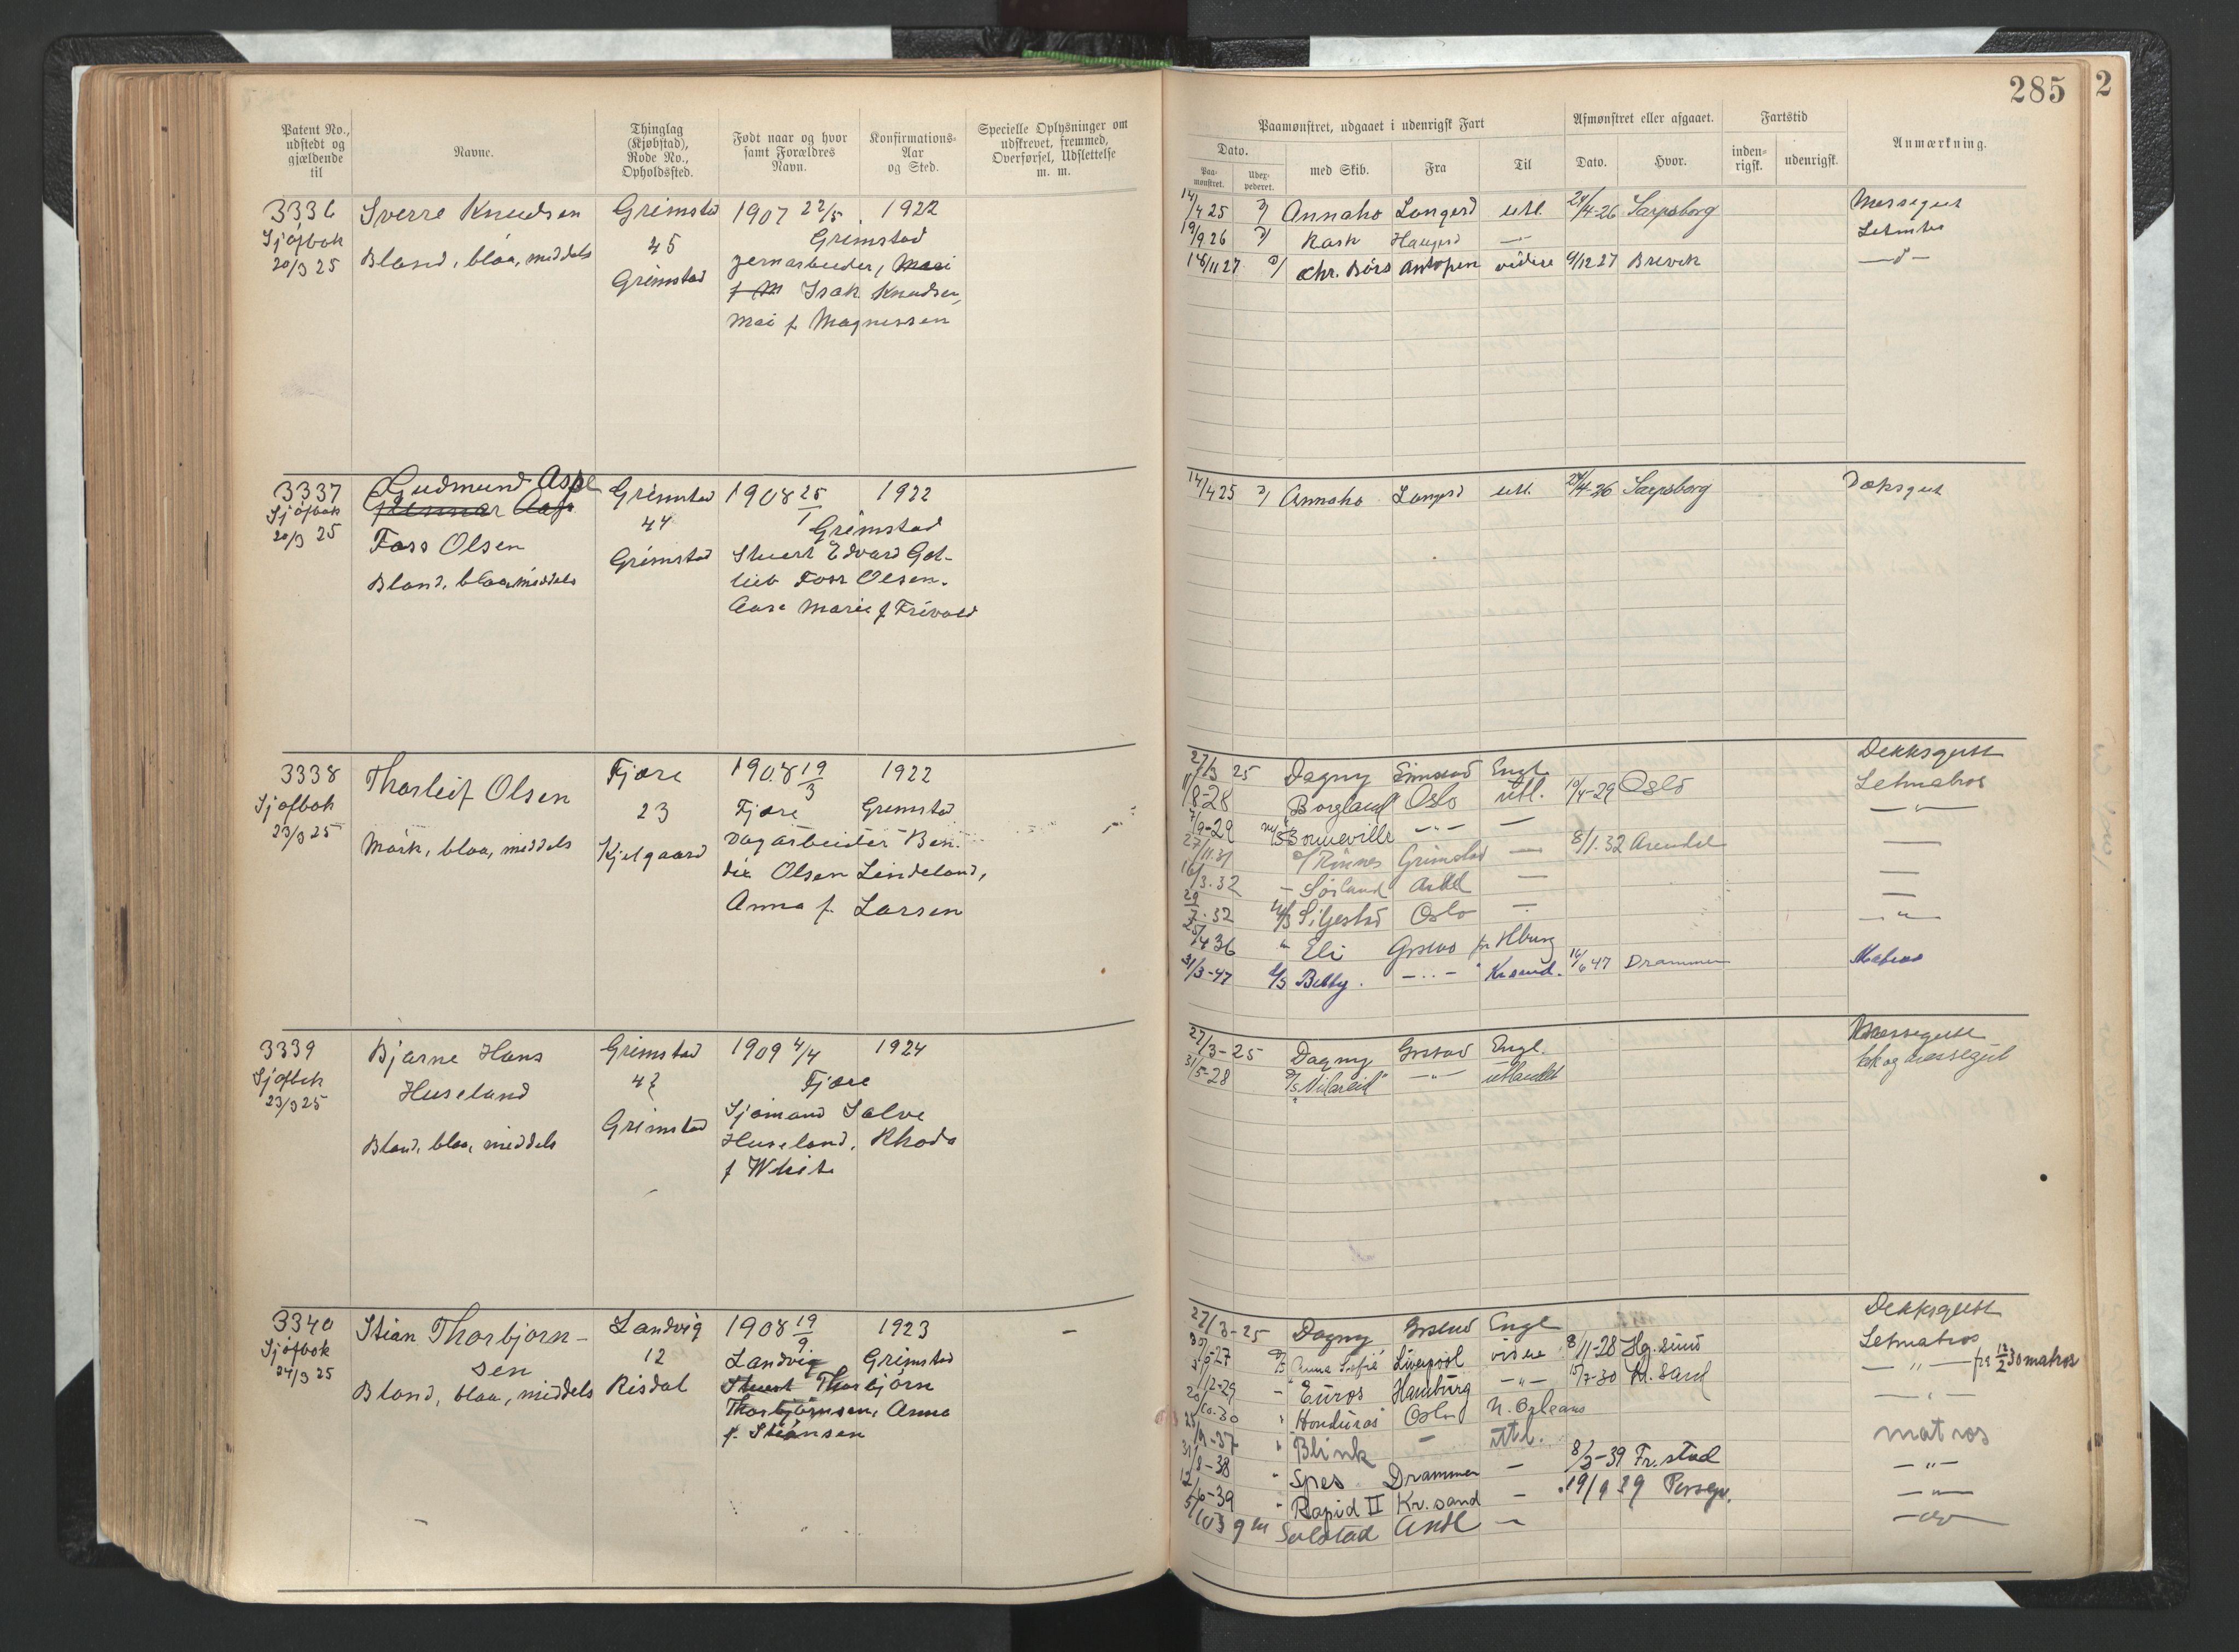 285
2
Patent No., udstedt og gjældende til
Navne.
Thinglag (Kjøbstad), Rode No., Opholdssted.
Født naar og hvor samt Forældres Navn.
Konfirmations-Aar og Sted.
Specielle Oplysninger om udskrevet, fremmed, Overførsel, Udslettelse m. m.
Paamønstret, udgaaet i udenrigsk Fart
Afmønstret eller afgaaet.
Fartstid
Anmærkning.
Dato.
Paa-mønstret.
Udex-pederet.
med Skib.
Fra
Til
Dato.
Hvor.
inden-rigsk.
udenrigsk.
3336 Sverre Knudsen Grimstad 1907 22/5 1922
Sjøfbok 45 Grimstad
20/3 25 Bland, blaa, middels Grimstad
jernarbeider, Mari
f M Isak Knudsen,
Mai f Magnussen
14/4 25 Annaho Langesd utl. 29/4-26 Sarpsborg Messegut
19/9 26 Rask Haugesd — Letmatros
16/11 27 Chr. Børs Antopen videre 9/12 27 Brevik —"—
3337 Gudmund Aspe Grimstad 1908 25/1 1922
Sjøfbok 44 Grimstad
20/3 25 Foss Olsen Grimstad Stuert Edvard Got-
Bland, blaa, middels lieb Foss Olsen.
Aase Marie f Frivold
14/4 25 Annaho Langesd utl. 29/4-26 Sarpsborg Dæksgut
3338 Thorleif Olsen Fjære 1908 19/3 1922
Sjøfbok 23 Fjære Grimstad
23/3 25 Mørk, blaa, middels Kjelgaard Dagarbeider Ben-
dix Olsen Lindeland,
Anna f. Larsen
27/3 25 Dagny Grimstad Engl. Dekksgutt
11/8-28 Borgland Oslo utl. 19/4-29 Oslo Letmatros
7/9-29 Bonneville —"— — —"—
27/11.31 Rönnes Grimstad — 8/1.32 Arendal —
16/3.32 — Sørland Ardl — —
29/7.32 Siljestad Oslo — —"—
25/4 36 " Eli Grstad Hburg
31/3-47 Betty. —"— Kr.sund. 16/6 47 Drammen Matros
3339 Bjarne Hans Grimstad 1909 4/4 1924
Sjøfbok Huseland 47 Fjære
23/3 25 Grimstad Sjømand Salve
Bland, blaa, middels Huseland, Rhoda
f White
27/3-25 Dagny Grstad Engl. Messegutt
31/5-28 "Vilareid" —"— utlandet kok og messegut
3340 Stian Thorbjørn- Landvig 1908 19/9 1923
Sjøfbok sen 12 Landvig Grimstad
24/3 25 Bland, blaa, middels Risdal Stuert Thorbjørn
Thorbjørnsen, Anna
f. Stiansen
27/3-25 Dagny Grstad Engl Dekksgutt
Anna Sofie Liverpool videre 8/11-28 Hg.sund Letmatros
/12-29 — Euros Hamburg —"— 15/7-30 Kr. Sand —"— fra 12/2 30 matros
20/10.30 " Honduras Oslo N. Orleans —"—
25/9-37 " Blink — utl. matros
31/8-38 " Spes Drammen — 8/3-39 Fr.stad —"—
12/6-39 " Rapid II Kr. sand — 19/9 39 Porsgr. —"—
5/10 39 Solstad Ardl —